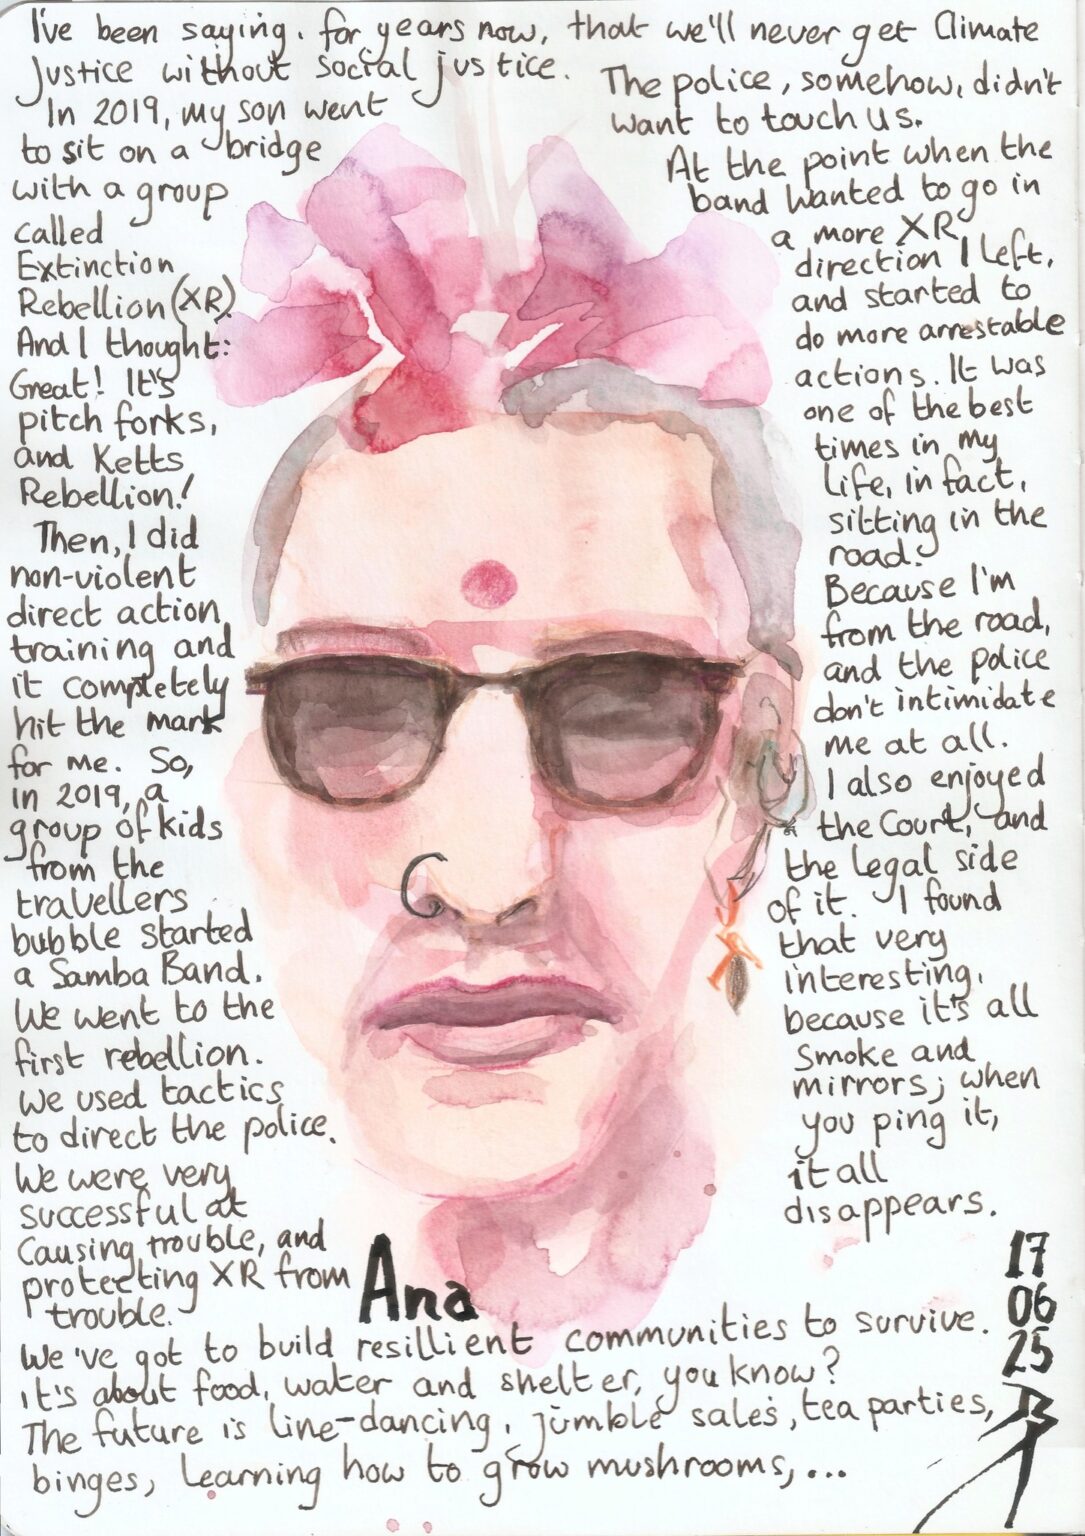 I've been saying, for years now, that we'll never get Climate
Justice without social justice.
In 2019, my son went
to sit on a bridge
with a group
called
Extinction
Rebellion (XR).
And I thought:
Great! It's
pitch forks,
and Ketts
Rebellion!
Then, I did
non-violent
direct action
training and
it completely
hit the mark
for me. So,
in 2019, a
group of kids
from the
travellers
bubble started
a Samba Band.
We went to the
first rebellion.
We used tactics
to direct the police.
We were very
successful at
causing trouble, and
protecting XR from
trouble.
The police, somehow, didn't
want to touch us.
At the point when the
band wanted to go in
a more XR
direction I left,
and started to
do more arrestable
actions. It was
one of the best
times in my
life, in fact,
sitting in the
road.
Because I'm
from the road,
and the police
don't intimidate
me at all.
I also enjoyed
the Court, and
the legal side
of it. I found
that very
interesting,
because it's all
smoke and
mirrors; when
you ping it,
it all
disappears.
Ana
We've got to build resillient communities to survive.
it's about food, water and shelter, you know?
The future is line-dancing, jumble sales, tea parties,
binges, learning how to grow mushrooms,...
17
06
25